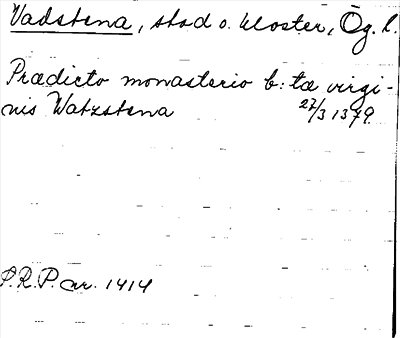 Vadstena, stad o. kloster, Ög. l.
Prædicto monasterio b:tæ virgi-
nis Watzstena 27/3 1379.
P.R.P. nr. 1414